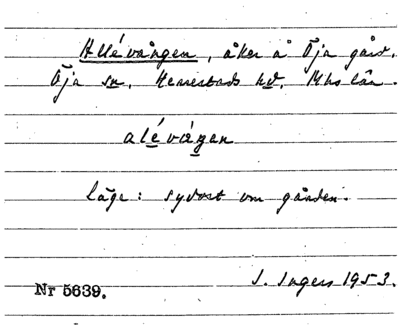 Allévången, åker å Öja gård,
Öja sn. Herrestads hd. Mhs län.
alévåŋən
läge: sydost om gården.
I. Ingers 1953.
Nr 5639.